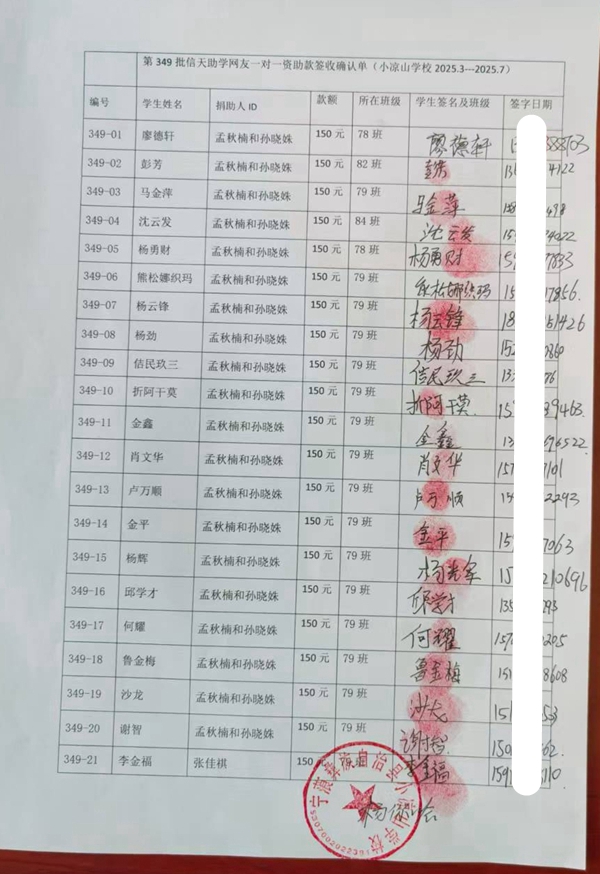 第 349 批信天助学网友一对一资助款签收确认单（小凉山学校 2025.3---2025.7）
编号 学生姓名 捐助人 ID 款额 所在班级 学生签名及班级 签字日期
349-01 廖德轩 孟秋楠和孙晓姝 150 元 78 班 廖德轩
349-02 彭芳 孟秋楠和孙晓姝 150 元 82 班 彭芳
349-03 马金萍 孟秋楠和孙晓姝 150 元 79 班 马金萍
349-04 沈云发 孟秋楠和孙晓姝 150 元 84 班 沈云发
349-05 杨勇财 孟秋楠和孙晓姝 150 元 78 班 杨勇财
349-06 熊松娜织玛 孟秋楠和孙晓姝 150 元 79 班 熊松娜织玛
349-07 杨云锋 孟秋楠和孙晓姝 150 元 79 班 杨云锋
349-08 杨劲 孟秋楠和孙晓姝 150 元 79 班 杨劲
349-09 佶民玖三 孟秋楠和孙晓姝 150 元 79 班 佶民玖三
349-10 折阿干莫 孟秋楠和孙晓姝 150 元 79 班 折阿干莫
349-11 金鑫 孟秋楠和孙晓姝 150 元 79 班 金鑫
349-12 肖文华 孟秋楠和孙晓姝 150 元 79 班 肖文华
349-13 卢万顺 孟秋楠和孙晓姝 150 元 79 班 卢万顺
349-14 金平 孟秋楠和孙晓姝 150 元 79 班 金平
349-15 杨辉 孟秋楠和孙晓姝 150 元 79 班
349-16 邱学才 孟秋楠和孙晓姝 150 元 79 班 邱学才
349-17 何耀 孟秋楠和孙晓姝 150 元 79 班 何耀
349-18 鲁金梅 孟秋楠和孙晓姝 150 元 79 班 鲁金梅
349-19 沙龙 孟秋楠和孙晓姝 150 元 79 班 沙龙
349-20 谢智 孟秋楠和孙晓姝 150 元 79 班 谢智
349-21 李金福 张佳棋 150 元 班 李金福
宁蒗彝族自治县小凉山学校